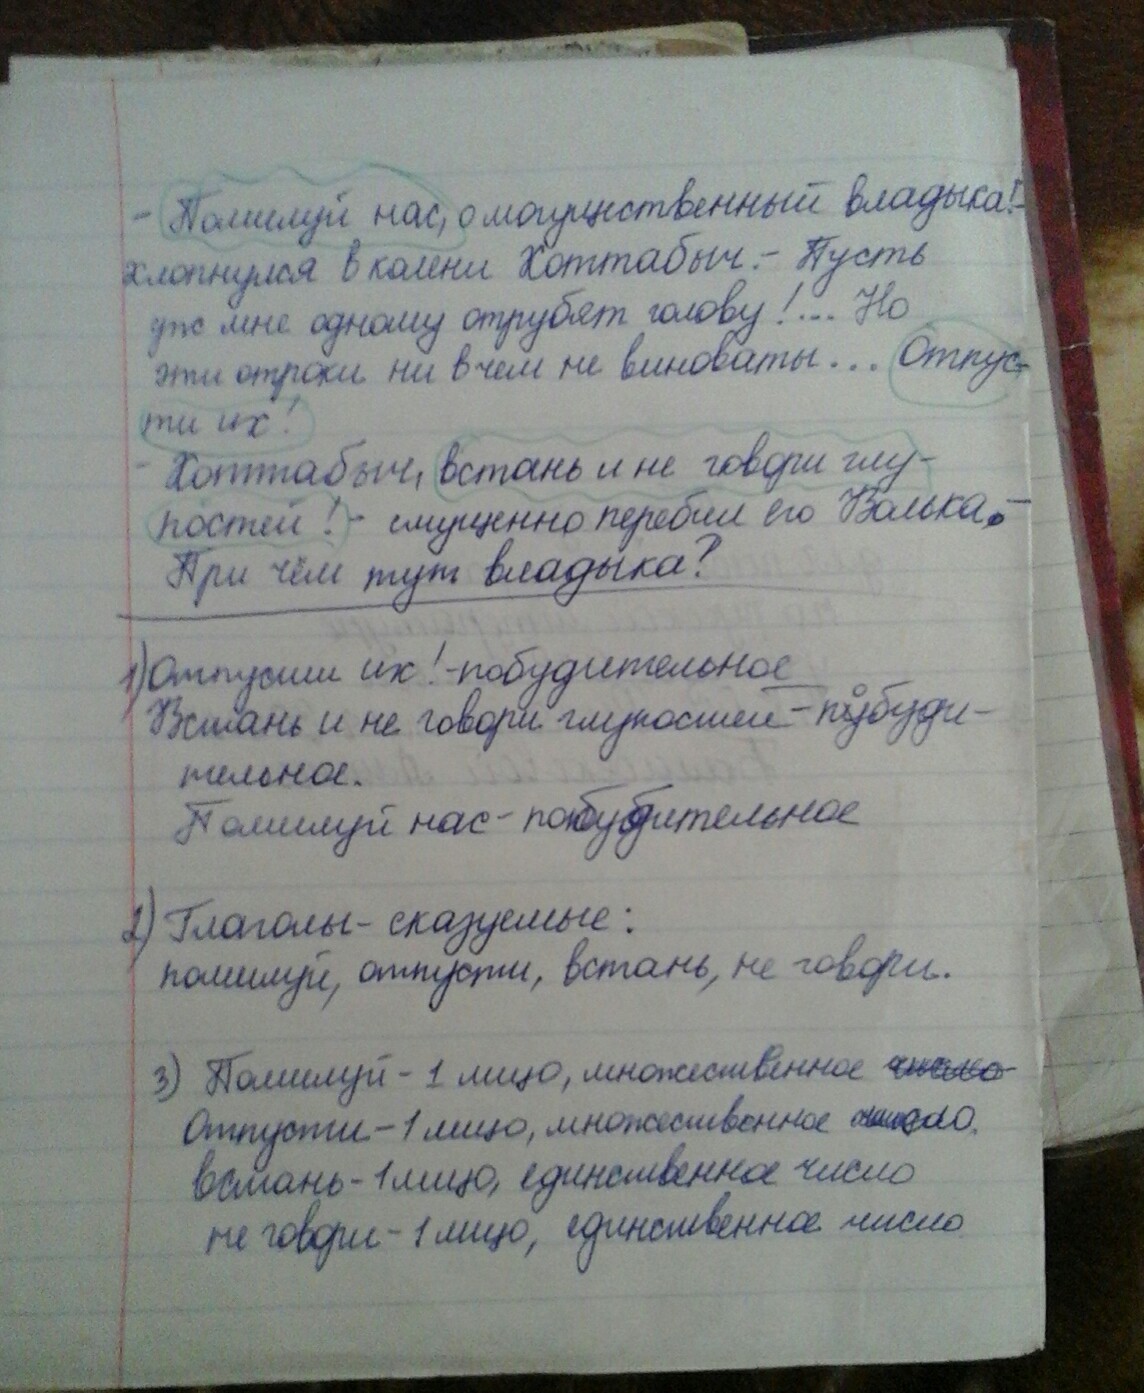 - Помилуй нас, о могущественный владыка! -
хлопнулся в колени Хоттабыч. - Пусть
уж мне одному отрубят голову!... Но
эти отроки ни в чем не виноваты... Отпус-
ти их!
- Хоттабыч, встань и не говори глу-
постей! - смущенно перебил его Волька. -
При чём тут владыка?
1) Отпусти их! - побудительное
Встань и не говори глупостей - побуди-
тельное.
Помилуй нас - побудительное
2) Глаголы - сказуемые:
помилуй, отпусти, встань, не говори.
3) Помилуй - 1 лицо, множественное число
Отпусти - 1 лицо, множественное число.
встань - 1 лицо, единственное число
не говори - 1 лицо, единственное число